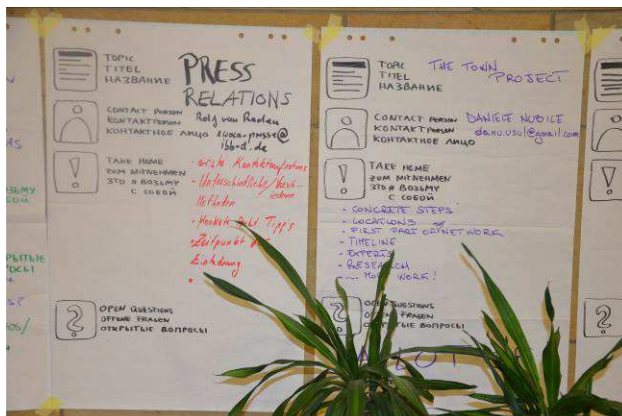 TOPIC
TITEL
НАЗВАНИЕ
PRESS
RELATIONS
CONTACT PERSON
KONTAKTPERSON
КОНТАКТНОЕ ЛИЦО
Rolf von
ibb-d.de
TAKE HOME
ZUM MITNEHMEN
ЭТО Я ВОЗЬМУ
С СОБОЙ
- erste Kontaktaufnahme
- Unterschiedliche
Methoden
Tipp's
- Zeitpunkt
Einladung
OPEN QUESTIONS
OFFENE FRAGEN
ОТКРЫТЫЕ ВОПРОСЫ
TOPIC
TITEL
НАЗВАНИЕ
THE TOWN
PROJECT
CONTACT PERSON
KONTAKTPERSON
КОНТАКТНОЕ ЛИЦО
DANIELE NUBILE
danu.usol@gmail.com
TAKE HOME
ZUM MITNEHMEN
ЭТО Я ВОЗЬМУ
С СОБОЙ
- CONCRETE STEPS
- LOCATIONS
- FIRST PART OF NETWORK
- TIMELINE
- EXPERTS
- RESEARCH
... MORE WORK!
OPEN QUESTIONS
OFFENE FRAGEN
ОТКРЫТЫЕ ВОПРОСЫ
A LOT